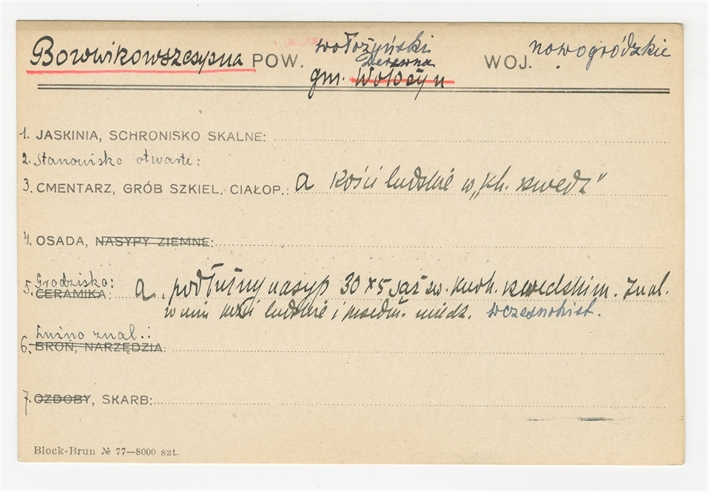 Borowikowszczyzna POW. wołożyński WOJ. nowogródzkie
Derewna
gm. Wołożyn
1. JASKINIA, SCHRONISKO SKALNE:
2. Stanowisko otwarte:
3. CMENTARZ, GRÓB SZKIEL. CIAŁOP.: a kości ludzkie w „kh. szwedz"
4. OSADA, NASYPY ZIEMNE:
Grodzisko:
5. CERAMIKA: a. podłużny nasyp 30 x 5 sąż zw. kurh. szwedskim. Znal.
w nim kości ludzkie i przedm. miedz. wczesnohist.
Luźno znal.:
6. BROŃ, NARZĘDZIA
7. OZDOBY, SKARB:
Block-Brun № 77—8000 szt.